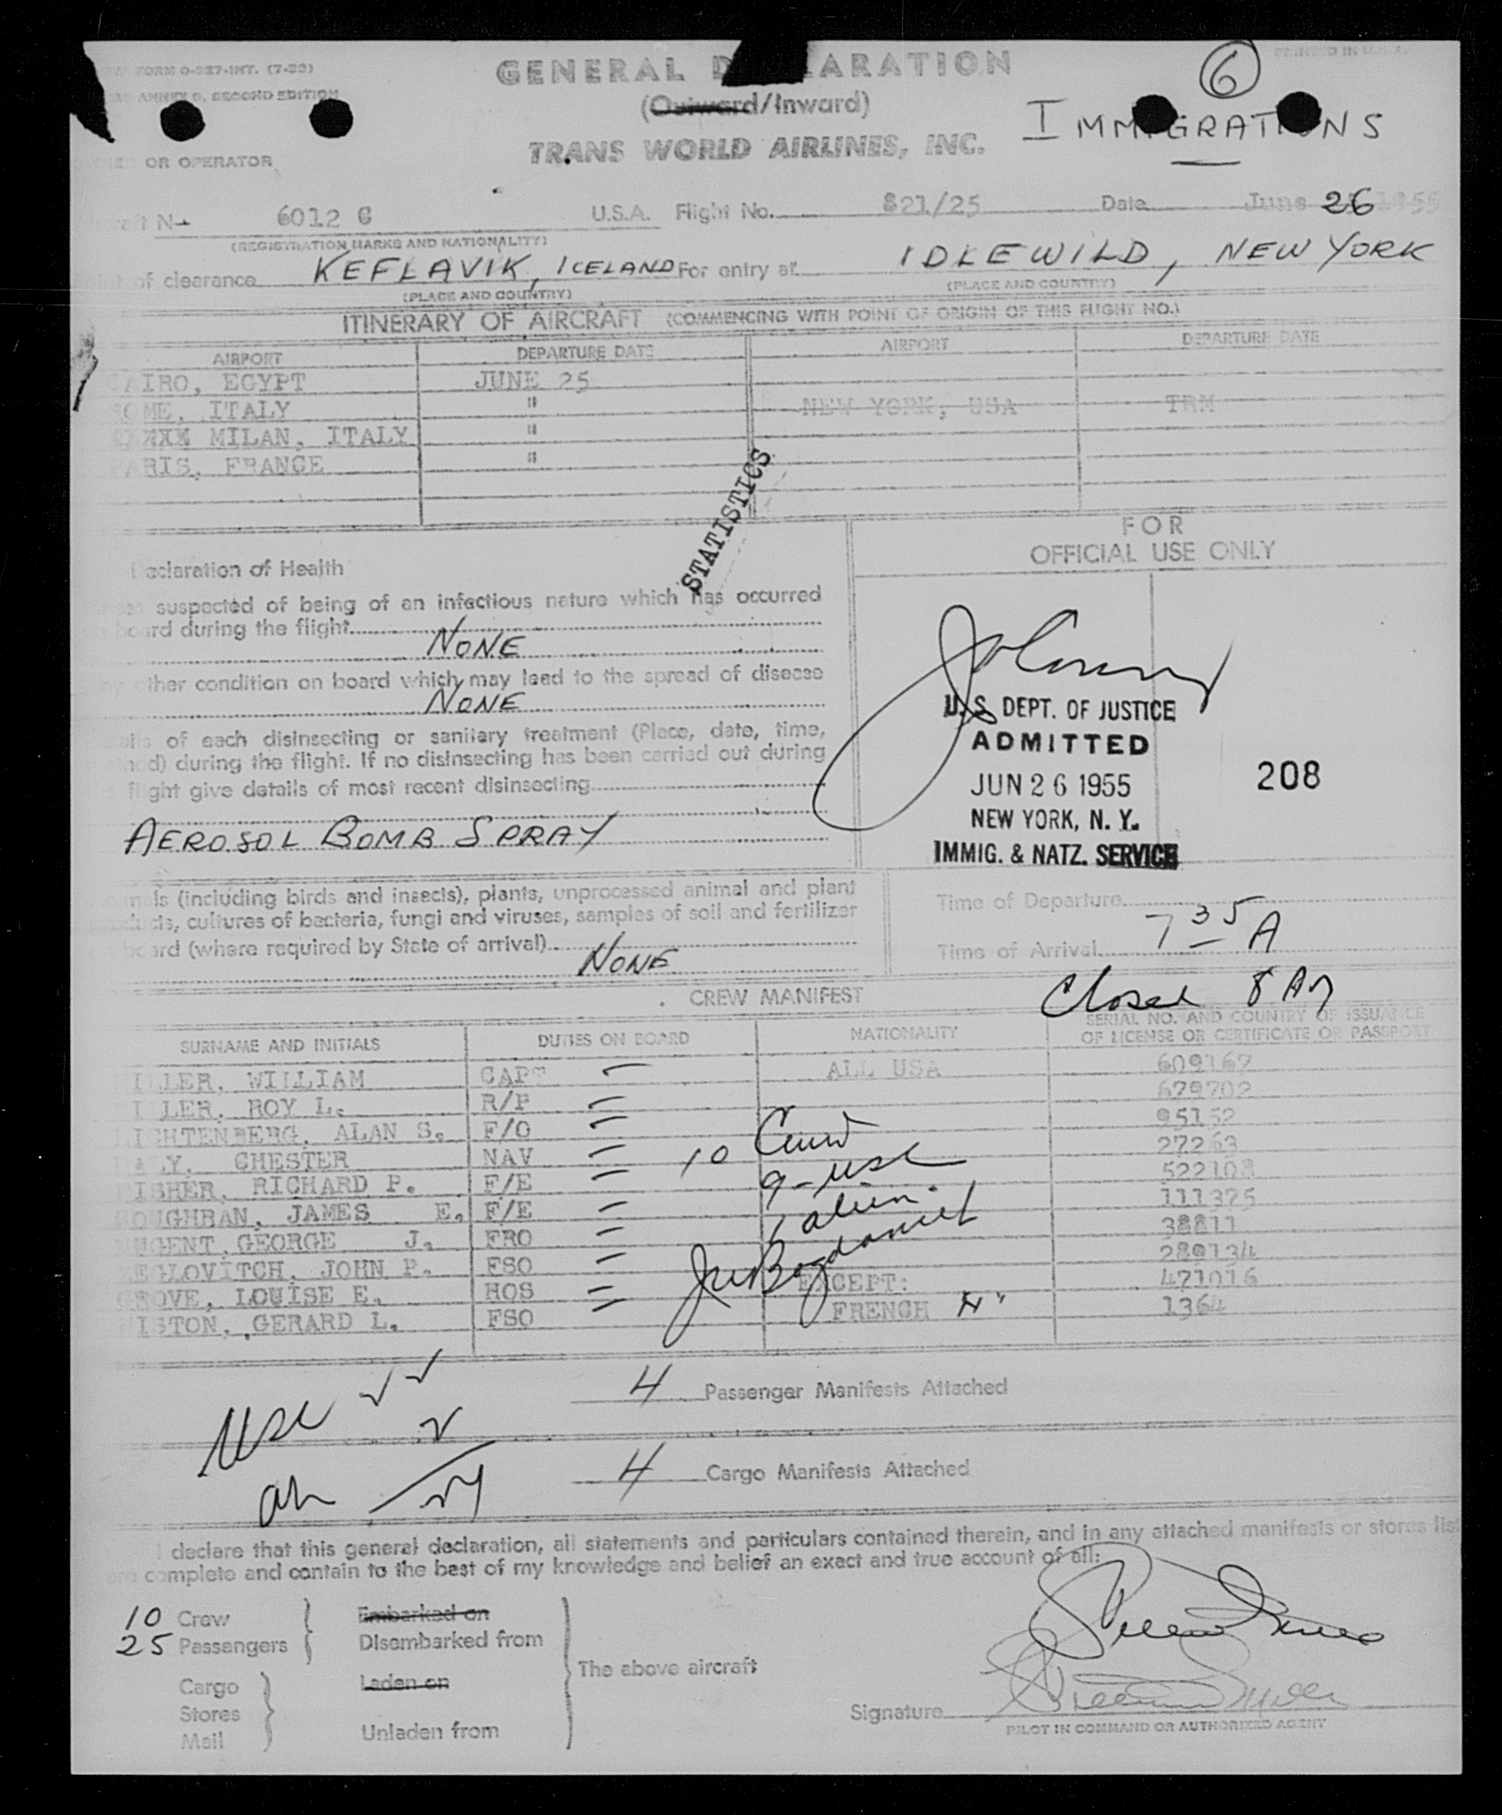 FORM O-327-INT. (7-53)
ANNEX 9, SECOND EDITION
PRINTED IN U.S.A.
6
GENERAL D ARATION
(Outward/Inward)
IMMIGRATIONS
TRANS WORLD AIRLINES, INC.
OR OPERATOR
N- 6012 C U.S.A. Flight No. 821/25 Date June 26 1955
(REGISTRATION MARKS AND NATIONALITY)
of clearance KEFLAVIK, ICELAND For entry at IDLEWILD, NEW YORK
(PLACE AND COUNTRY) (PLACE AND COUNTRY)
ITINERARY OF AIRCRAFT (COMMENCING WITH POINT OF ORIGIN OF THIS FLIGHT NO.)
AIRPORT DEPARTURE DATE AIRPORT DEPARTURE DATE
CAIRO, EGYPT JUNE 25
ROME, ITALY " NEW YORK, USA TRM
MILAN, ITALY "
PARIS, FRANCE "
STATISTICS
FOR
OFFICIAL USE ONLY
Declaration of Health
suspected of being of an infectious nature which has occurred
board during the flight
NONE
other condition on board which may lead to the spread of disease
NONE
of each disinsecting or sanitary treatment (Place, date, time,
method) during the flight. If no disinsecting has been carried out during
flight give details of most recent disinsecting
AEROSOL BOMB SPRAY
U.S. DEPT. OF JUSTICE
ADMITTED
JUN 26 1955
NEW YORK, N. Y.
IMMIG. & NATZ. SERVICE
208
(including birds and insects), plants, unprocessed animal and plant
products, cultures of bacteria, fungi and viruses, samples of soil and fertilizer
board (where required by State of arrival)
NONE
Time of Departure
Time of Arrival 7 35 A
Closed 8 AM
CREW MANIFEST
SURNAME AND INITIALS DUTIES ON BOARD NATIONALITY SERIAL NO. AND COUNTRY OF ISSUANCE
OF LICENSE OR CERTIFICATE OR PASSPORT
MILLER, WILLIAM CAPT ALL USA 609167
MILLER, ROY L. R/P 679702
LICHTENBERG, ALAN S. F/O 95152
DALY, CHESTER NAV 27263
FISHER, RICHARD P. F/E 522108
LOUGHRAN, JAMES E. F/E 111375
NUGENT, GEORGE J. FRO 38811
SEGLOVITCH, JOHN P. FSO 289134
GROVE, LOUISE E. HOS EXCEPT: 471016
GERARD L. FSO FRENCH 1364
10 Crew
9 - USC
1 alien.
USC
4 Passenger Manifests Attached
4 Cargo Manifests Attached
I declare that this general declaration, all statements and particulars contained therein, and in any attached manifests or stores list
are complete and contain to the best of my knowledge and belief an exact and true account of all:
10 Crew Embarked on
25 Passengers Disembarked from
The above aircraft
Cargo Laden on
Stores
Mail Unladen from
Signature William Miller
PILOT IN COMMAND OR AUTHORIZED AGENT